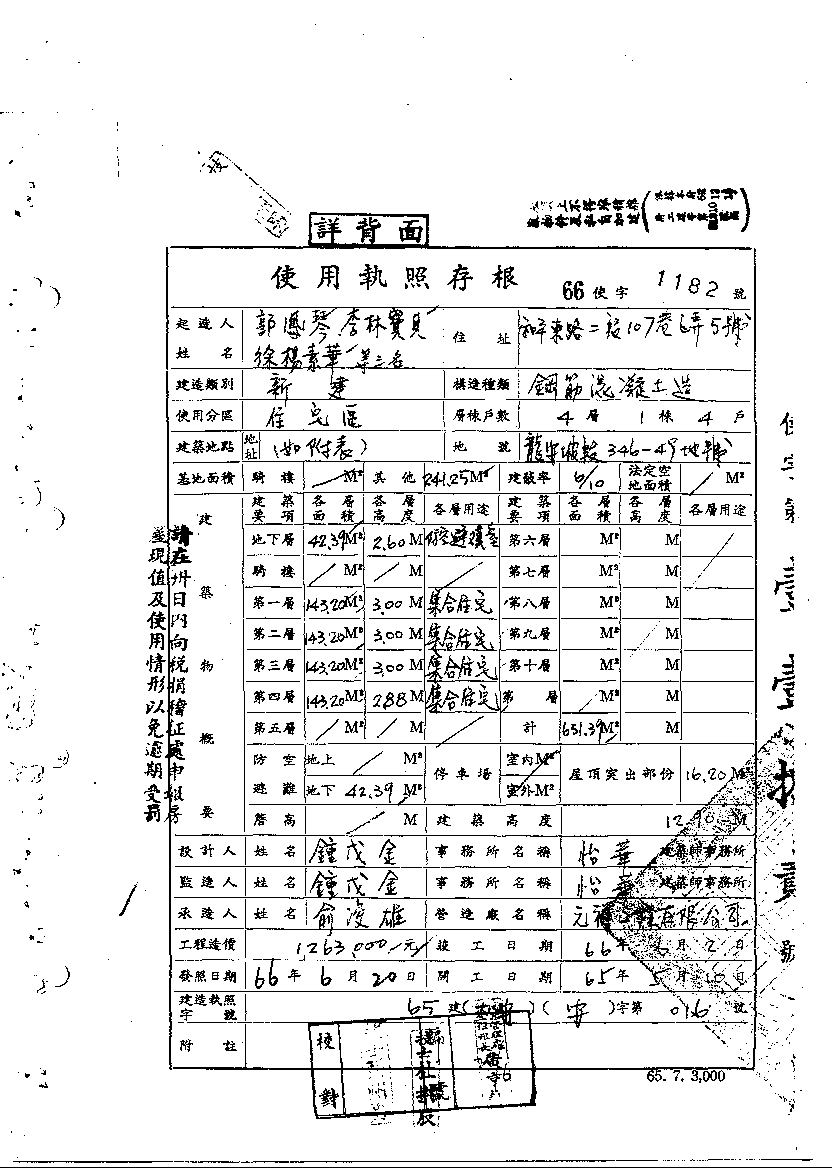 詳背面
使用執照存根
66使字 1182 號
起造人姓名 郭鳳琴 李林寶貝 徐楊素華 等三名 住址 和平東路二段107巷 弄5號
建造類別 新建 構造種類 鋼筋混凝土造
使用分區 住宅區 層棟戶數 4層 1棟 4戶
建築地點 地址 (如附表) 地號 龍安坡段346-49地號
基地面積 騎樓 / M² 其他 241.25M² 建蔽率 6/10 法定空地面積 / M²
建築物概要 建築要項 各層面積 各層高度 各層用途 建築要項 各層面積 各層高度 各層用途
地下層 42.39M² 2.60M 防空避難室 第六層 M² M
騎樓 / M² / M / 第七層 M² M
第一層 143.20M² 3.00M 集合住宅 第八層 M² M
第二層 143.20M² 3.00M 集合住宅 第九層 M² M
第三層 143.20M² 3.00M 集合住宅 第十層 M² M
第四層 143.20M² 2.88M 集合住宅 第 層 / M² M
第五層 / M² / M / 計 651.39M² M
防空避難 地上 / M² 停車場 室內M² 屋頂突出部份 16.20M²
地下 42.39 M² 室外M²
簷高 / M 建築高度 12.90 M
設計人 姓名 鍾茂金 事務所名稱 怡華 建築師事務所
監造人 姓名 鍾茂金 事務所名稱 怡華 建築師事務所
承造人 姓名 俞浚雄 營造廠名稱 元 有限公司
工程造價 1,263,000/元 竣工日期 66年 月2日
發照日期 66年6月20日 開工日期 65年5月 日
建造執照字號 65建( )(安)字第 016 號
附註
校對
65.7.3,000
請在卅日內向稅捐稽征處申報房
並現值及使用情形以免逾期受罰
使字第
號